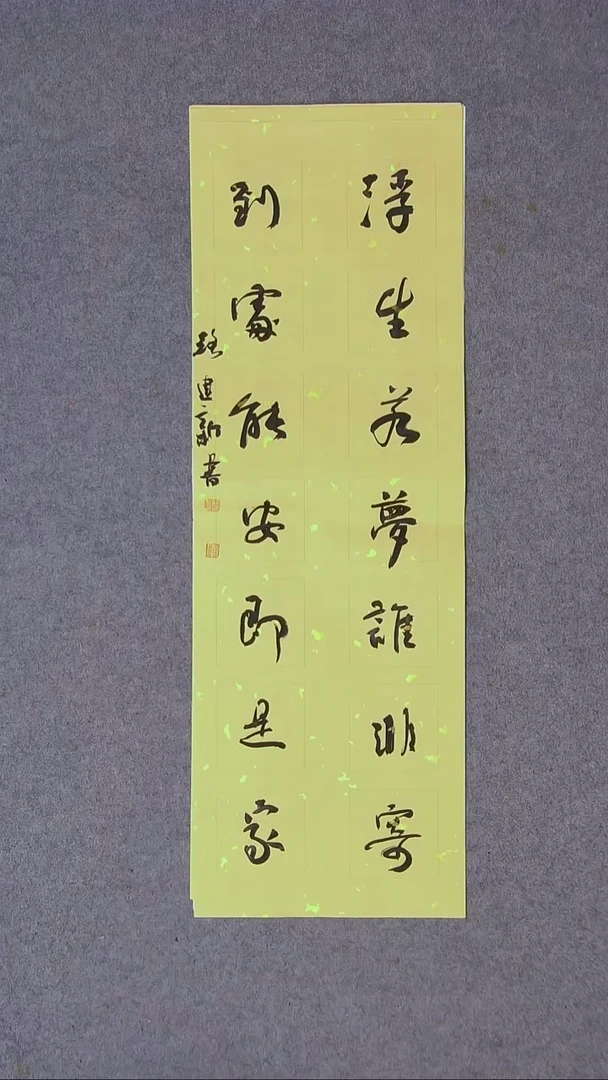 浮生若夢誰非寄
到處能安即是家
路建新書